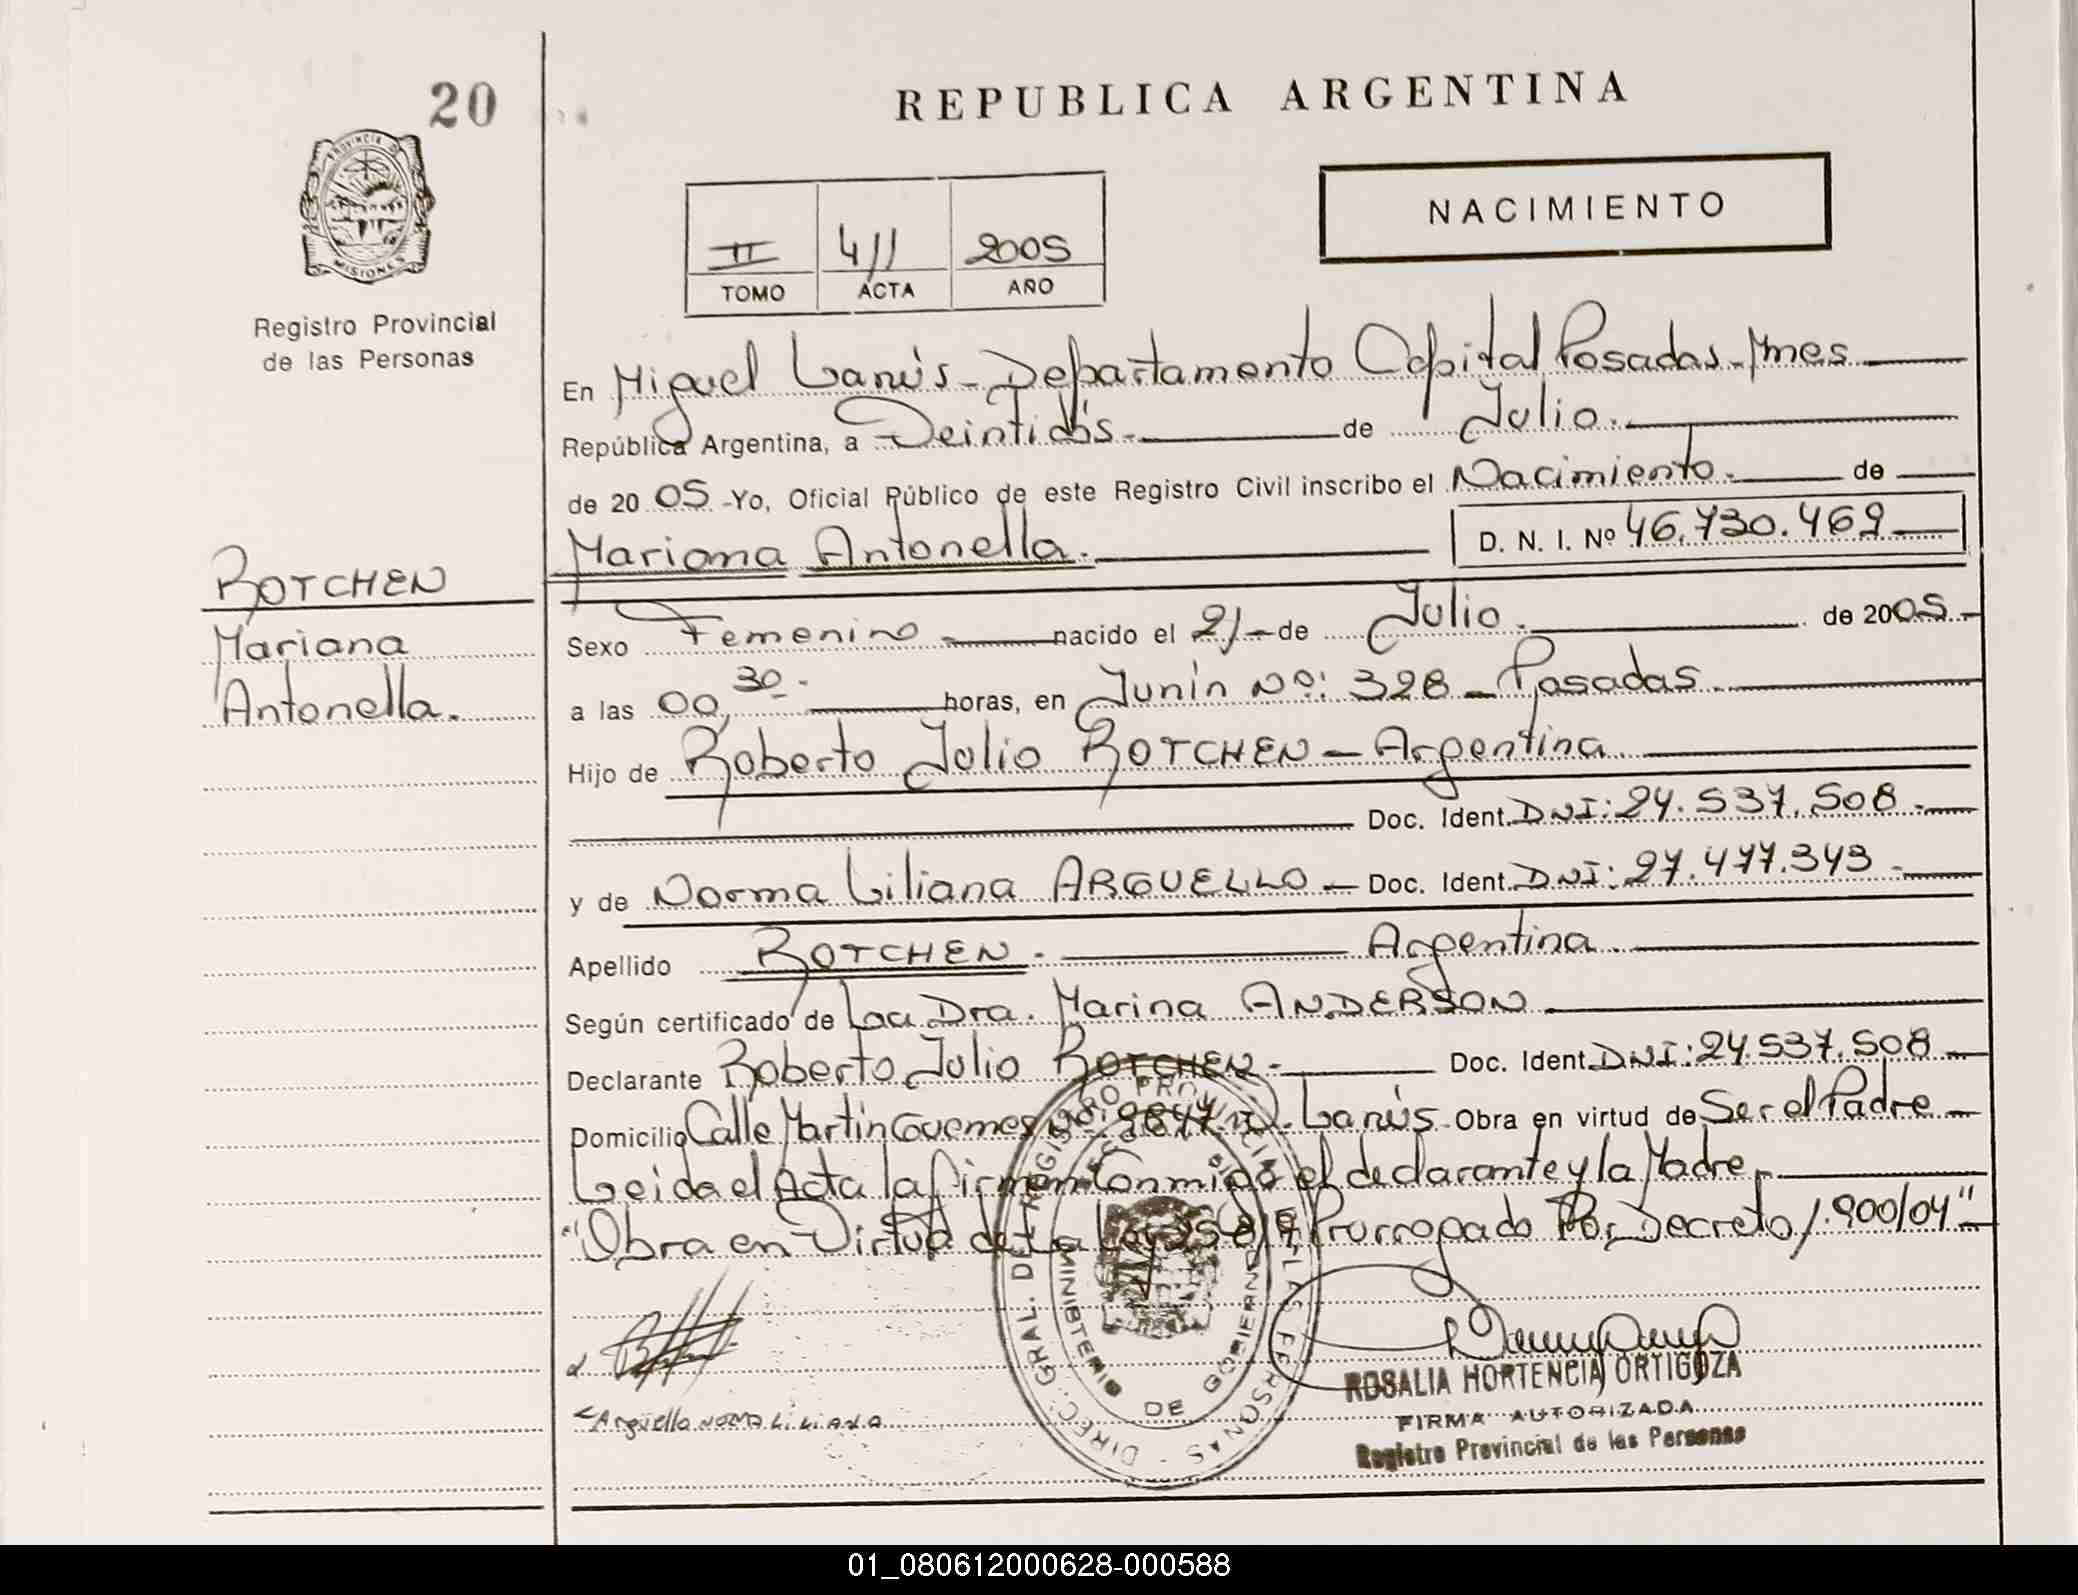 20
REPUBLICA ARGENTINA
PROVINCIA D
MISIONES
Registro Provincial
de las Personas
NACIMIENTO
II 411 2005
TOMO ACTA AÑO
En Miguel Lanús - Departamento Capital Posadas - Mnes
República Argentina, a Veintidós. de Julio.
de 20 05 - Yo, Oficial Público de este Registro Civil inscribo el Nacimiento. de
Mariana Antonella. D. N. I. Nº 46.730.469
ROTCHEN
Mariana
Antonella.
Sexo Femenino nacido el 21 - de Julio. de 2005.-
a las 00,30.- horas, en Junín Nº: 328 - Posadas
Hijo de Roberto Julio ROTCHEN - Argentina
Doc. Ident. DNI: 24.537.508.-
y de Norma Liliana ARGUELLO - Doc. Ident. DNI: 27.477.343.-
Apellido ROTCHEN. Argentina
Según certificado de La Dra. Marina ANDERSON
Declarante Roberto Julio ROTCHEN.- Doc. Ident. DNI: 24.537.508
Domicilio Calle Martin Guemes Nº: M. Lanús. Obra en virtud de Ser el Padre
Leida el Acta la firman Conmigo el declarante y la Madre.
"Obra en Virtud de La Ley Prorrogado Por Decreto 1.900/04"
Arguello NORMA LiLiANA
DIREC. GRAL. DEL REGISTRO PROVINCIAL DE LAS PERSONAS
MINISTERIO DE GOBIERNO
ROSALIA HORTENCIA ORTIGOZA
FIRMA AUTORIZADA
Registro Provincial de las Personas
01_080612000628-000588